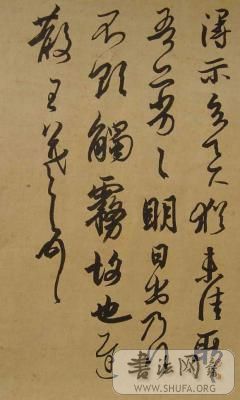 得示知足下猶未佳耿
吾亦劣々明日出乃行
不欲觸霧故也遲
散王羲之頓首
書法网
WWW.SHUFA.ORG